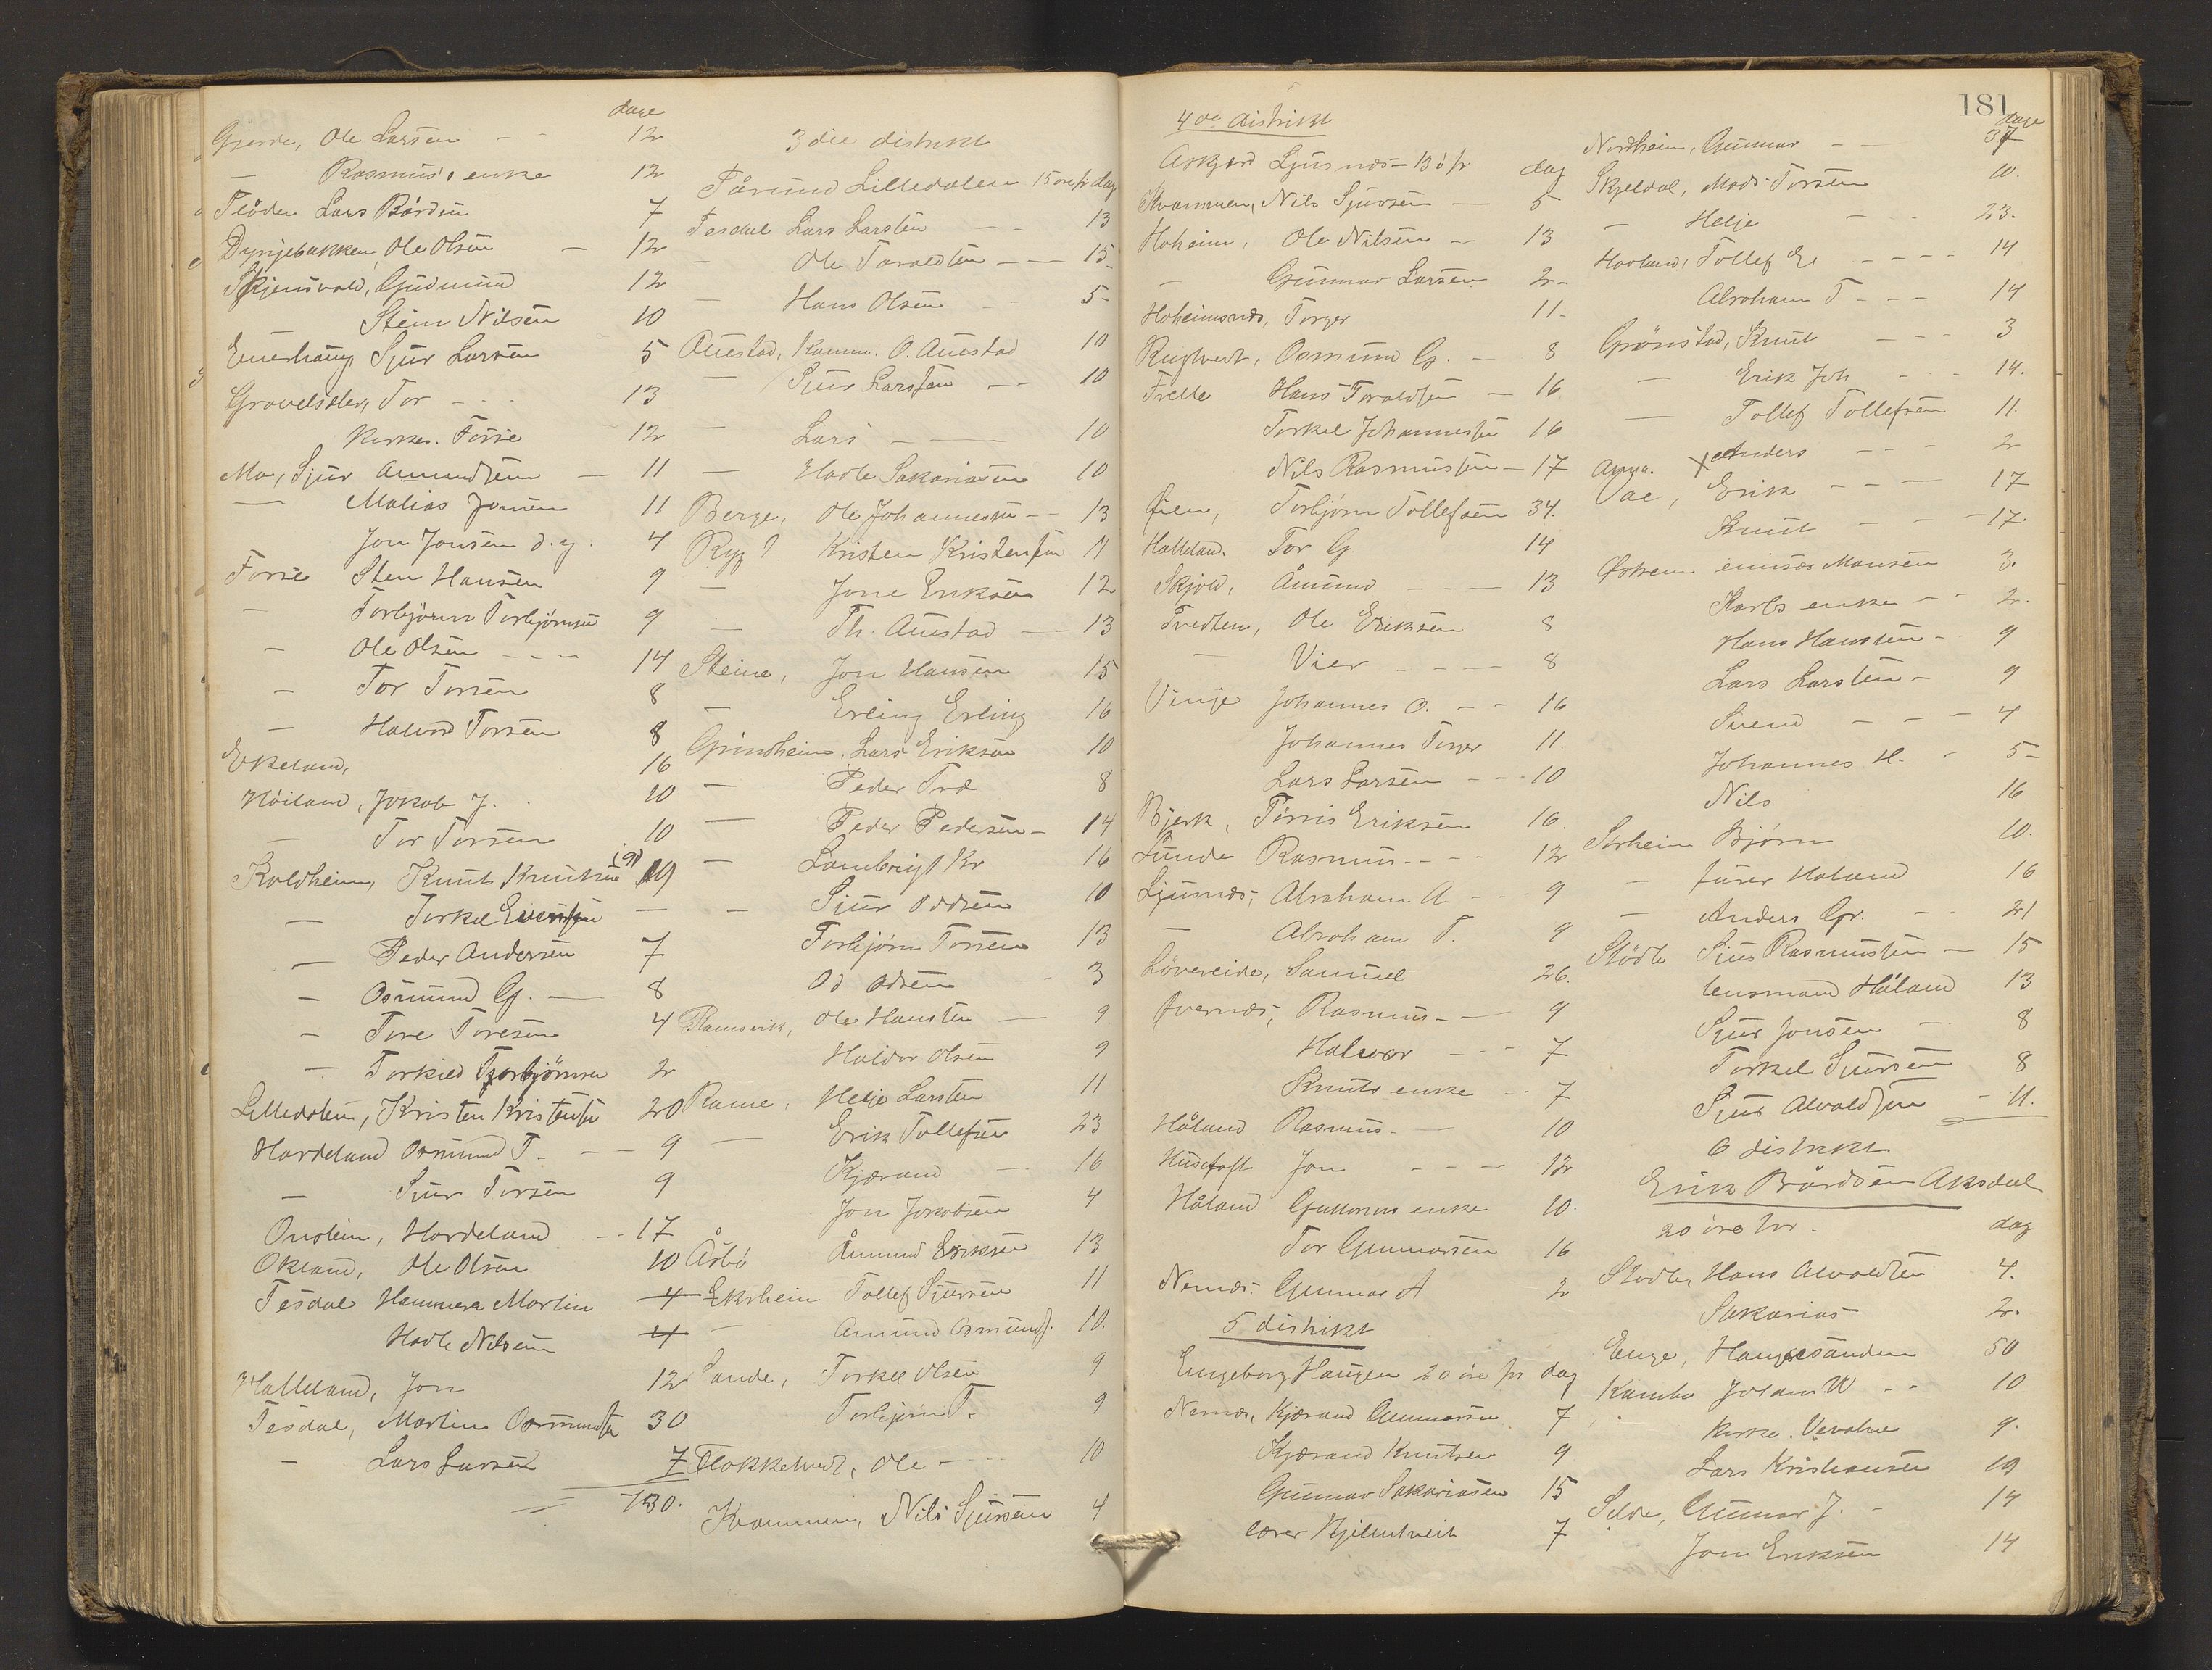 dage
Gjerde, Ole Larsen - - 12
— Rasmus's enke 12
Flöden Lars Bårdsen 7
Dyngebakken, Ole Olsen - 12
Skjensvold, Gudmund 12
Stein Nilsen 10
Sjur Larsen 5
Tor - - - 13
Kirkes. Førre 12
Mo, Sjur Amundsen - 11
— Matias Jonsen 11
Jon Jonsen d.y. 4
Førre Sten Hansen 9
— Torbjörn Torbjörnsen 9
- Ole Olsen - - - 14
- Tor Torsen 8
— Halvor Torsen 8
Ekeland, 16
Höiland, Jakob J. . 10
— Tor Torsen 10
Koldheim, Knut Knutsen (9) 19
— Torkel Evensen —
— Peder Andersen 7
— Osmund G. — 8
— Tore Toresen 4
— Torkild Torbjörnsen 2
Lilledalen, Kristen Kristensen 20
Hardeland Osmund T. - - 9
— Sjur Torsen 9
Onstein, Hardeland - - 17
Økland, Ole Olsen 10
Tesdal Hammera Martin 4
Hadle Nilsen 4
Halleland, Jon 12
Tesdal, Martin Osmundsen 30
- Lars Larsen 7
= 730.
3die distrikt
Tårmund Lilledalen 15 øre pr dag
Tesdal Lars Larsten - - 13
- Ole Taraldsen - - 15
— Hans Olsen - - 5
Auestad, Kamm. O. Auestad 10
— Sjur Larsen - - 10
— Lars - — 10
— Hadle Sakariasen 10
Berge, Ole Johannessen - - 13
Rygg Kristen Kristensen 11
— Jone Eriksen 12
— Th. Auestad - - 13
Steine, Jon Hansen 15
— Erling Erling 16
Grindheim, Lars Eriksen 10
— Peder Trd 8
— Peder Pedersen - 14
— Lambrigt Kr 16
- Sjur Oddsen 10
Torbjörn Torsen 13
Od Odsen 3
Ramsvik, Ole Hansten — 9
Haldor Olsen 9
Rame, Helje Larsten 11
— Erik Tollefsen 23
Kjærand — 16
Jon Jakobsen 4
Åsbö Åmund Eriksen 13
Ekrheim Tollef Sjursen 11
- Amund Osmunds. 10.
Sande, Torkel Olsen 9
Torbjørn T. 9
Flokketvedt, Ole - 10
Kvammen, Nils Sjursen 4
181
4de distrikt
Askjerd Ljusnes - 13 ö pr dag
Kvammen, Nils Sjursen — 5
Hoheim, Ole Nilsen — 13
— Gunnar Larsen 2 -
Hoheimsnes, Torger 11.
Rugtvedt, Osmund G. - 8
Frette Hans Taraldsen — 16
Torkel Johannessen 16
Nils Rasmussen — 17
Öien, Torbjørn Tollefsen 34.
Halleland. Tor G. 14
Skjold, Åmund - - - 13
Tvedten, Ole Eriksen 8
— Vier - - - 8
Vinje Johannes O. - - 16
Johannes Torger 11.
Lars Larsen - - 10
Bjerk, Tørris Eriksen 16.
Lunde Rasmus - - - 12
Ljusnes, Abraham A - - 9
— Abraham T. 9
Lövereide, Samuel 26.
Rasmus - — 9
Halvor - - - 7
Knuts enke - - 7
Håland Rasmus - — 10
Husetoft Jon - - - 12
Håland Guttorms enke 10.
Tor Gunnarsen 16
Nernes. Gunnar A 2
5 distrikt
Engeborg Haugen 20 öre pr dag
Nernes, Kjærand Gunnarsen 7
Kjærand Knutsen 9
Gunnar Sakariasen 15
lærer Hjelmtveit 7
dage
Nordheim, Gunnar - - 37
Skjeldal, Mads Torsen 10.
— Helje - - - 23.
Havland, Tollef E. - - - - 14
Abraham T - - - 14
Grönstad, Knut - - 3
— Erik Joh - - - 14.
— Tollef Tollefsen 11.
Anders - - - 2
Vae, Erik - - - 17
Knut - - - 17.
Østrem Mansen 3.
Karls enke - - 2.
Hans Hansten - 9
Lars Larsten - 9
Svend - - - 4
Johannes H. - 5 -
Nils 16
Sørheim Bjørn 10.
- Håland 16
- Anders Gr. - - 21
Stödle Sjur Rasmussen — 15
lensmand Håland 13
Sjur Jonsen - 8
Torkel Sjursen 8
Sjur Alvaldsen - 11.
6 distrikt
Erik Bårdsen Aksdal
20 öre pr. dag
Stödle, Hans Alvaldsen 4.
Sakarias 2.
Enge, Haugesanderen 50
Kambe Johans W - - 10
9.
Lars Kristiansen 19
Selde, Gunnar J. - 14
Jon Eriksen 14